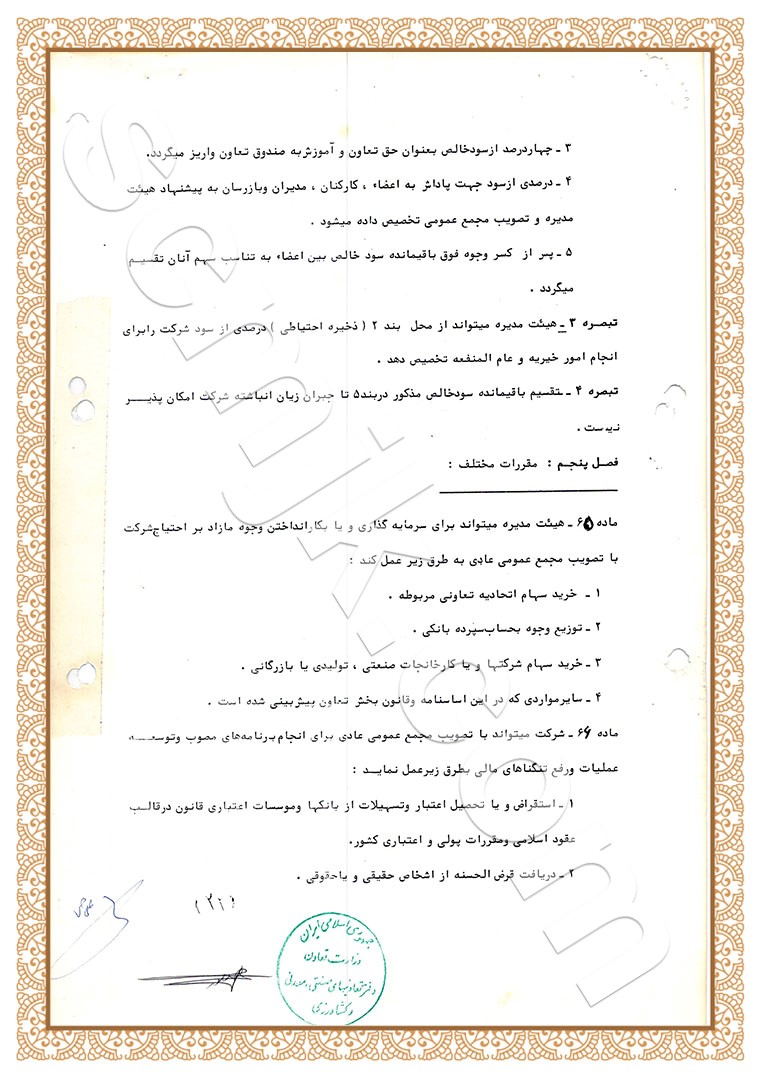 ۳ ـ چهاردرصد ازسودخالص بعنوان حق تعاون و آموزش‌به صندوق تعاون واریز میگردد.
۴ ـ درصدی ازسود جهت پاداش به اعضاء ، کارکنان ، مدیران وبازرسان به پیشنهاد هیئت
مدیره و تصویب مجمع عمومی تخصیص داده میشود .
۵ ـ پس از کسر وجوه فوق باقیمانده سود خالص بین اعضاء به تناسب سهم آنان تقسیم
میگردد .
تبصره ۳ ـ هیئت مدیره میتواند از محل بند ۲ ( ذخیره احتیاطی ) درصدی از سود شرکت رابرای
انجام امور خیریه و عام المنفعه تخصیص دهد .
تبصره ۴ ـ تقسیم باقیمانده سودخالص مذکور دربند۵ تا جبران زیان انباشته شرکت امکان پذیـــر
نیست .
فصل پنجم : مقررات مختلف :
ماده ۶۵ ـ هیئت مدیره میتواند برای سرمایه گذاری و یا بکارانداختن وجوه مازاد بر احتیاج‌شرکت
با تصویب مجمع عمومی عادی به طرق زیر عمل کند :
۱ ـ خرید سهام اتحادیه تعاونی مربوطه .
۲ ـ توزیع وجوه بحساب‌سپرده بانکی .
۳ ـ خرید سهام شرکتها و یا کارخانجات صنعتی ، تولیدی یا بازرگانی .
۴ ـ سایرمواردی که در این اساسنامه وقانون بخش تعاون پیش‌بینی شده است .
ماده ۶۶ ـ شرکت میتواند با تصویب مجمع عمومی عادی برای انجام‌برنامه‌های مصوب وتوسعـــه
عملیات ورفع تنگناهای مالی بطرق زیرعمل نمایـد :
۱ ـ استقراض و یا تحصیل اعتبار وتسهیلات از بانکها وموسسات اعتباری قانون درقالـب
عقود اسلامی ومقررات پولی و اعتباری کشور.
۲ ـ دریافت قرض الحسنه از اشخاص حقیقی و یاحقوقی .
جمهوری اسلامی ایران
وزارت تعاون
دفتر تعاونیهای صنعتی، معدنی
و کشاورزی